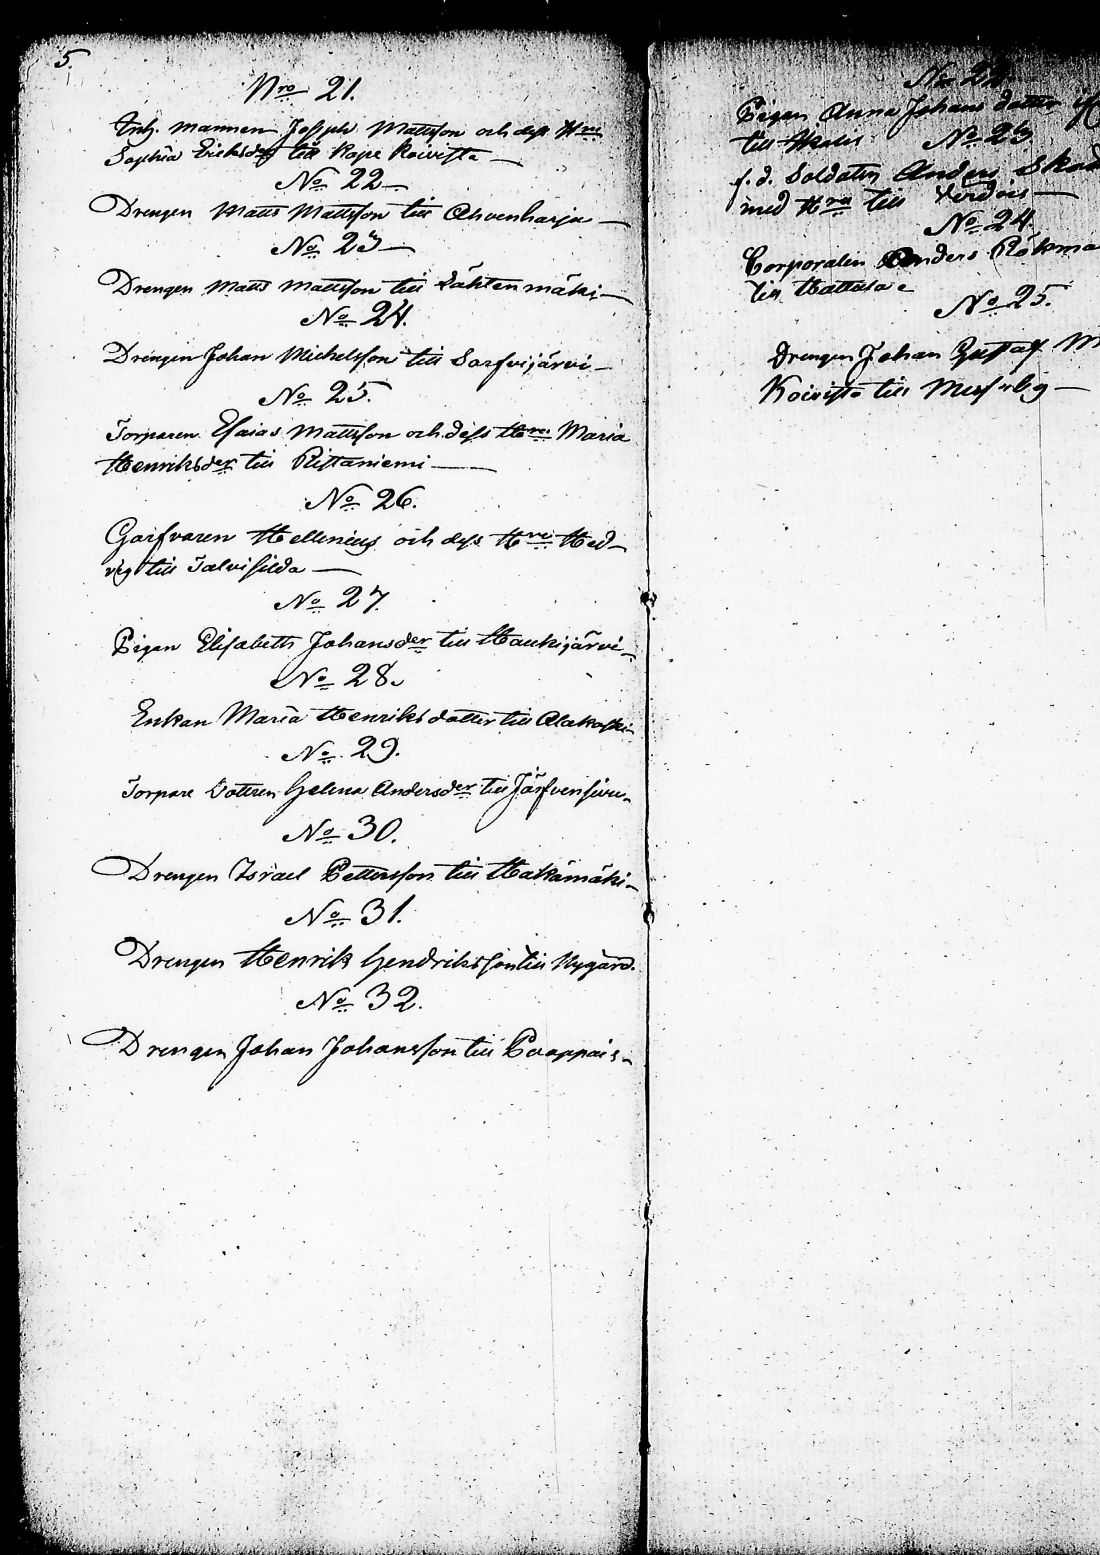 5.
Nro 21.
Inh. mannen Joseph Mattsson och dess H:ru
Sophia Ericksd:r till Kape Koivisto
No 22
Drengen Matts Mattsson till Ahvenharja
No 23
Drengen Matts Mattsson till Lähtenmäki
No 24.
Drengen Johan Michelsson till Sarfvijärvi
No 25.
Torparen Esaias Mattsson och dess H:ru Maria
Henriksder till Ristaniemi
No 26.
Garfvaren Hellenius och dess H:ru Hed-
vig till Talvisilda
No 27
Pigan Elisabeth Johansder till Haukijärvi
No 28.
Enkan Maria Henriksdotter till Alakoski
No 29.
Torpare Dottren Helena Andersder till Järfvensivu
No 30.
Drengen Israel Pettersson till Hakamäki
No 31.
Drengen Henrik Hendriksson till Nygård.
No 32.
Drengen Johan Johansson till Paappais
No 22.
Pigan Anna Johans dotter
till
No 23.
f. d. Soldaten Anders
med H:ru till
No 24.
Corporalen Anders
till
No 25.
Drengen Johan Gustaf M
Koivisto till